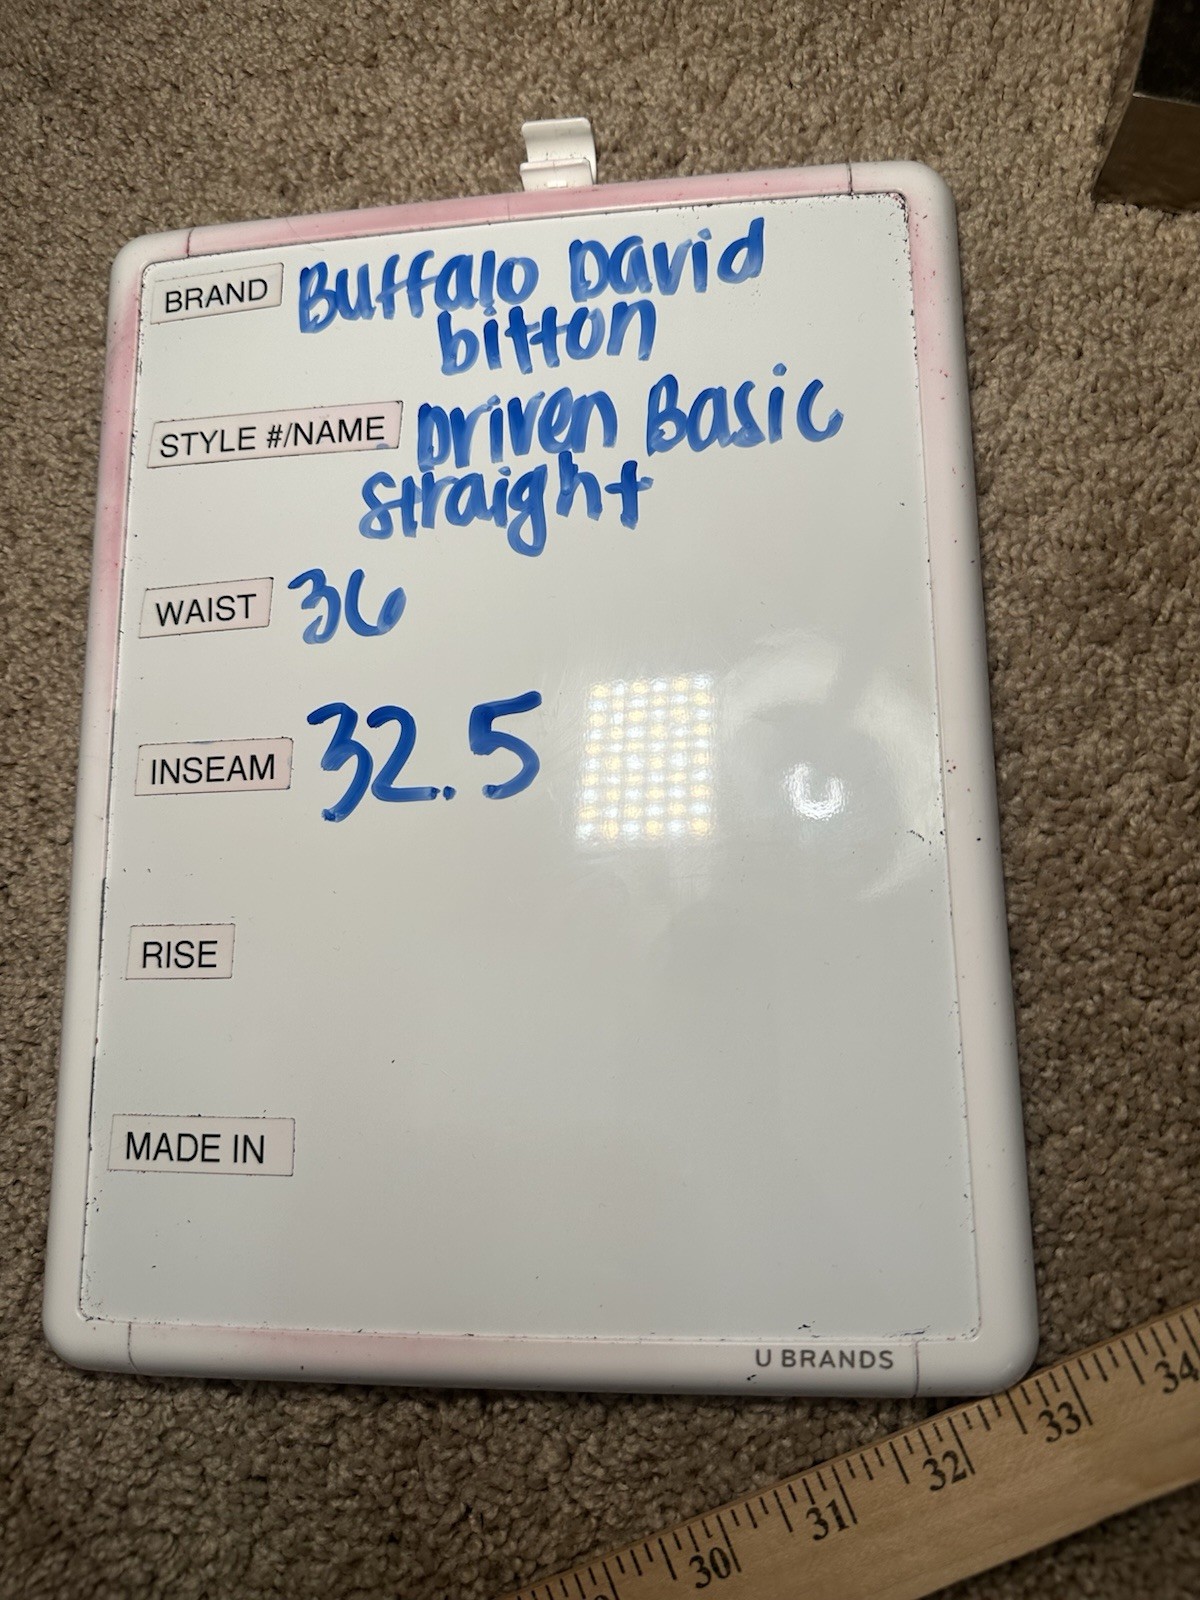 BRAND Buffalo David
bitton
STYLE #/NAME Driven Basic
straight
WAIST 36
INSEAM 32.5
RISE
MADE IN
U BRANDS
30 31 32 33 34